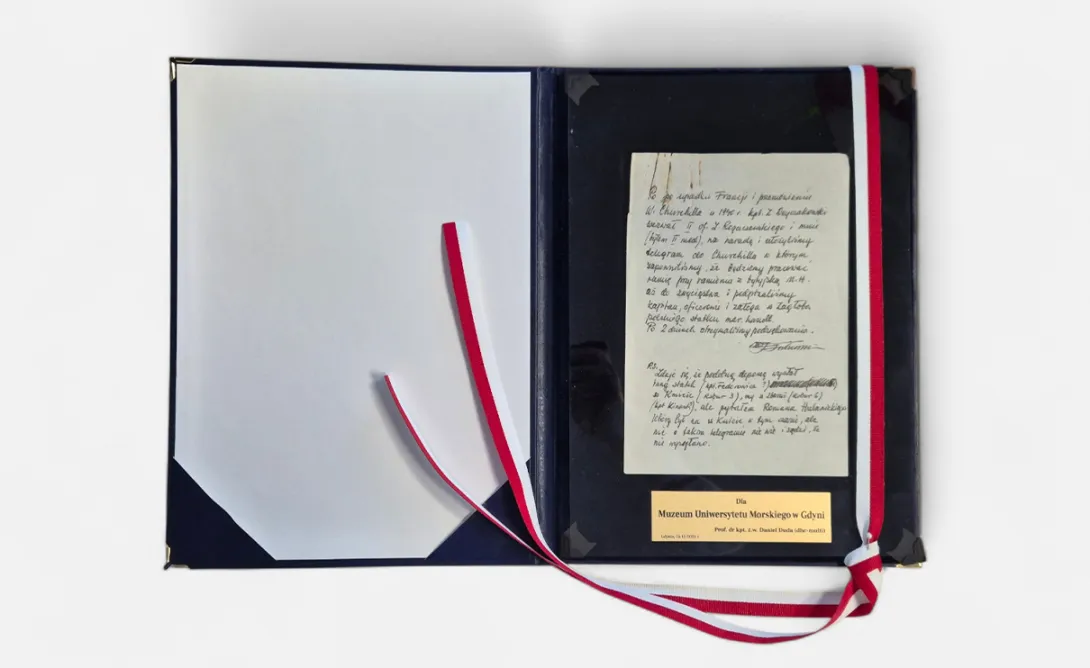 Po upadku Francji i przemówieniu
W. Churchilla w 1940 r. kpt. Z. Deyczakowski
wezwał II of. Z. Rogozińskiego i mnie
(byłem II mech), na naradę i ułożyliśmy
telegram do Churchilla w którym
zapewniliśmy, że będziemy pracować
ramię przy ramieniu z brytyjską M.H.
aż do zwycięstwa i podpisaliśmy
kapitan, oficerowie i załoga m
polskiego statku mar. handl.
Po 2 dniach otrzymaliśmy podziękowanie.
P.S.
Zdaje się, że podobną depeszę wysłał
inny statek (kpt.
w Kuwicie
(kpt ale pytałem Romana
który był na w tym czasie, ale
nic o takim telegramie nie wie i sądzi, że
nie wysłano.
Dla
Muzeum Uniwersytetu Morskiego w Gdyni
Prof. dr kpt. ż.w. Daniel Duda